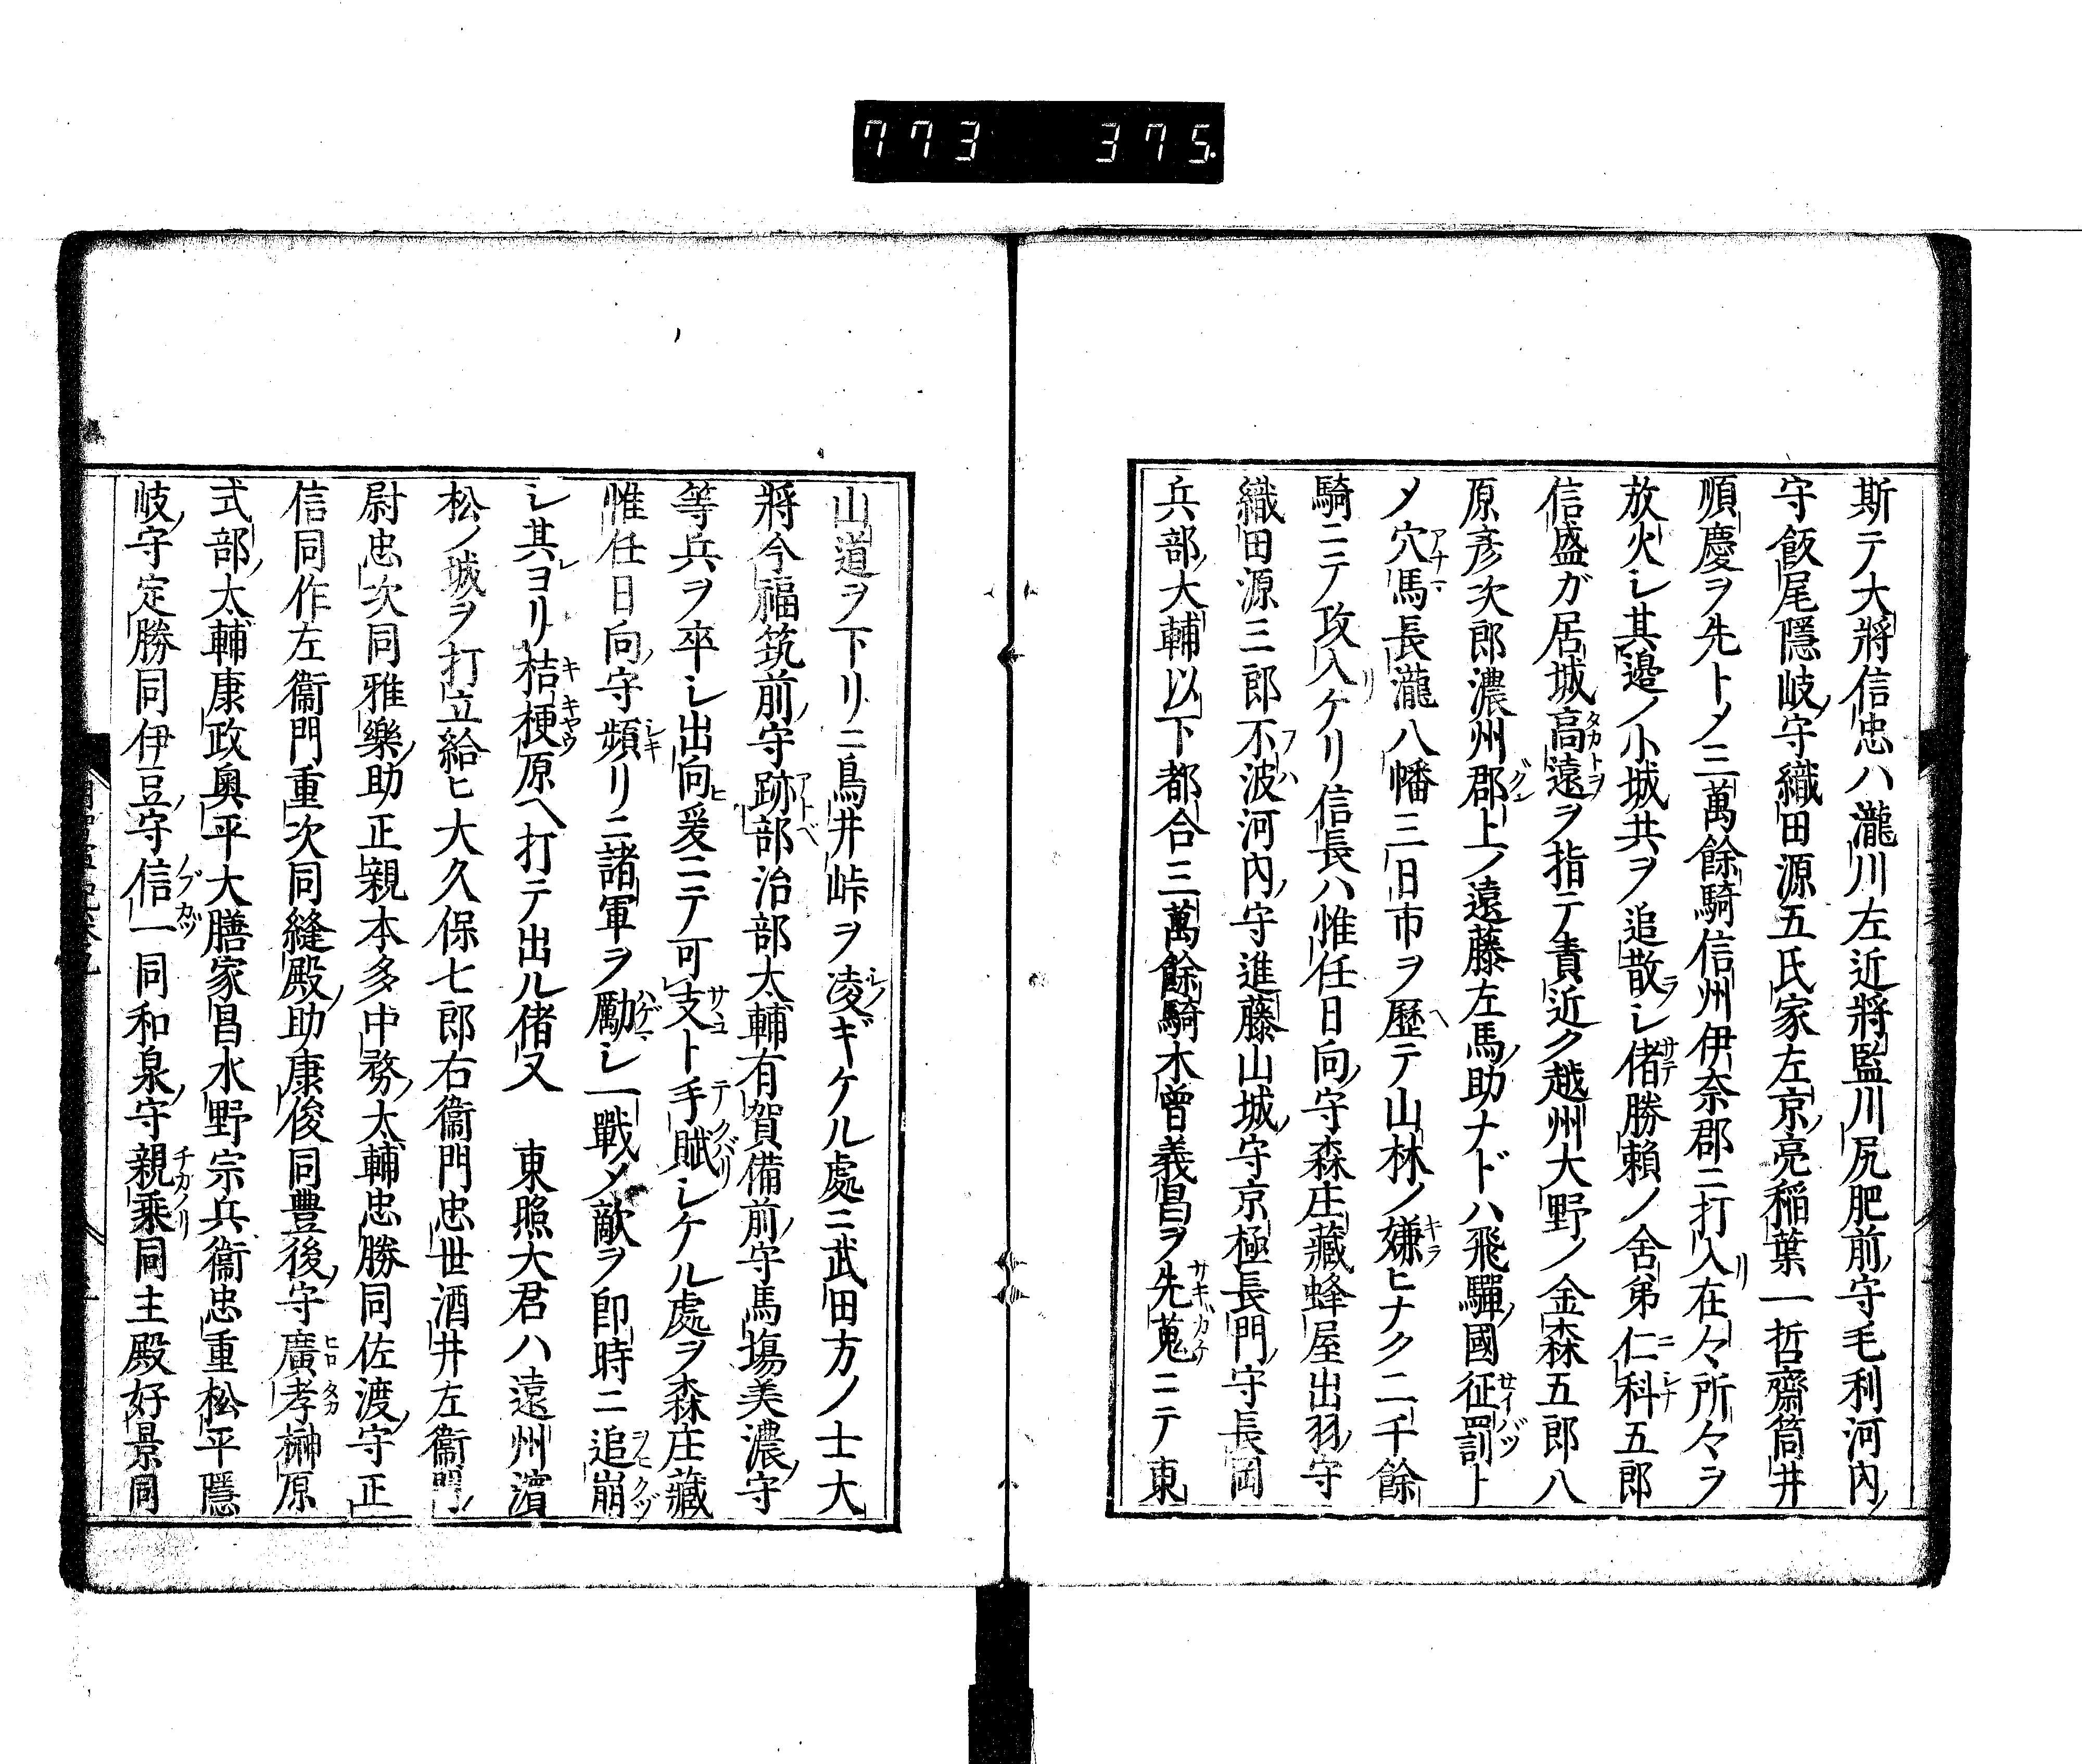 773 375
斯テ大將信忠ハ瀧川左近將監川尻肥前ノ守毛利河内ノ
守飯尾隱岐ノ守織田源五氏家左京ノ亮稲葉一哲齋筒井
順慶ヲ先トメ三萬餘騎信州伊奈郡ニ打入リ在々所々ヲ
放火シ其邉ノ小城共ヲ追散ラシ偖サテ勝賴ノ舍弟仁ニ科シナ五郎
信盛ガ居城高遠タカトヲヲ指テ責近ク越州大野ノ金森五郎八
原彦次郎濃州郡グン上ノ遠藤左馬ノ助ナドハ飛驒ノ國征罰サイバツト
メ穴馬アナマ長瀧八幡三日市ヲ歷ヘテ山林ノ嫌キラヒナク二千餘
騎ニテ攻入リケリ信長ハ惟任日向ノ守森庄藏蜂屋出羽ノ守
織田源三郎不波フハ河内ノ守進藤山城ノ守京極長門ノ守長岡
兵部ノ大輔以下都合三萬餘騎木曾義昌ヲ先蒐サキガケニテ東
山道ヲ下リニ鳥井峠ヲ凌シノギケル處ニ武田方ノ士大
將今福筑前ノ守跡部アトベ治部太輔有賀備前ノ守馬塲美濃ノ守
等兵ヲ卒シ出向ヒ爰ニテ可レ支サヽユト手賦テクバリシケル處ヲ森庄藏
惟任日向ノ守頻シキリニ諸軍ヲ勵ハゲマシ一戰メ敵ヲ即時ニ追崩ヲヒクヅ
シ其レヨリ桔梗キキヤウ原ヘ打テ出ル偖又　東照大君ハ遠州濱
松ノ城ヲ打立給ヒ大久保七郎右衞門忠世酒井左衞門ノ
尉忠次同雅樂ノ助正親本多中務ノ太輔忠勝同佐渡ノ守正
信同作左衞門重次同縫殿ノ助康俊同豊後ノ守廣孝ヒロタカ榊原
式部ノ太輔康政奥平大膳家昌水野宗兵衞忠重松平隱
岐ノ守定勝同伊豆ノ守信一ノブカヅ同和泉ノ守親乗チカノリ同主殿好景同